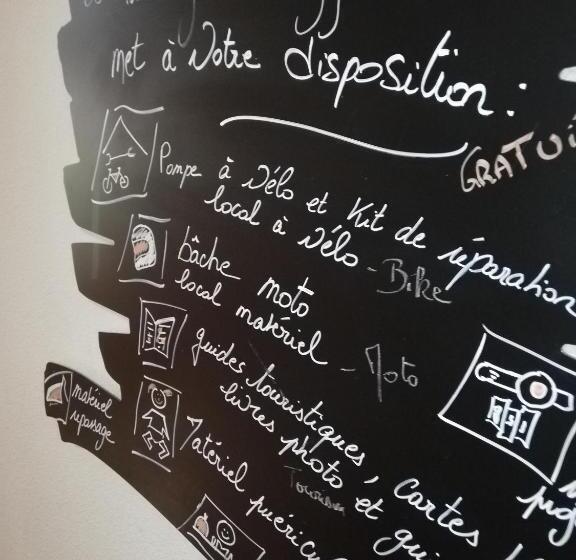 met à Votre disposition :
GRATUI
Pompe à Vélo et Kit de réparation
local à Vélo - Bike
bâche moto
local matériel - Moto
guides touristiques, cartes
livres photo et gui
Tourism
matériel
repassage
Matériel puéricu